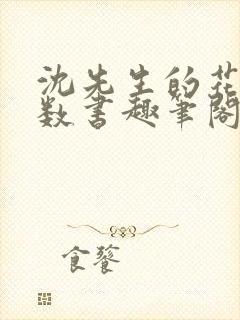 沈先生的花
数书趣笔阁
食饕